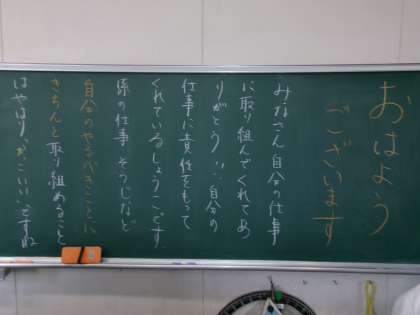 おはよう
ございます
みなさん自分の仕事
に取り組んでくれてあ
りがとう!!自分の
仕事に責任をもって
くれているしょうこです
係の仕事 そうじなど
自分のやるべきことに
きちんと取り組めること
はやはり、かっこいいですね